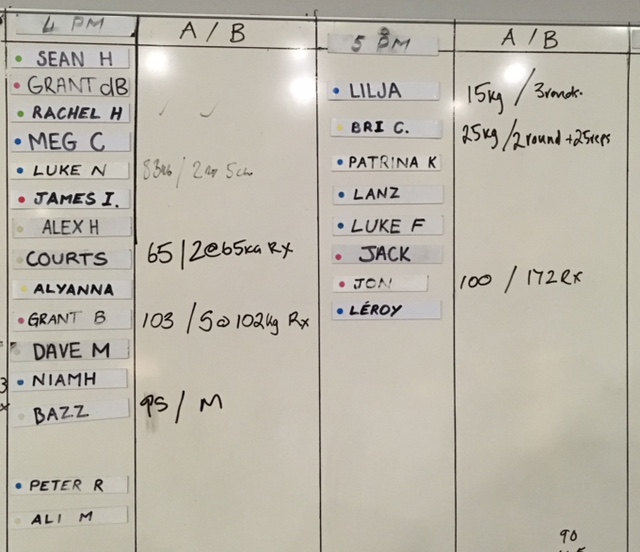 4 PM A / B
SEAN H
GRANT dB
RACHEL H
MEG C
LUKE N
JAMES I.
ALEX H
COURTS 65 / 2@65kg Rx
ALYANNA
GRANT B 103 / 5@102kg Rx
DAVE M
NIAMH
BAZZ 95 / M
PETER R
ALI M
5 PM A / B
LILJA 15kg / 3rounds.
BRI C. 25kg / 2round +25reps
PATRINA K
LANZ
LUKE F
JACK
JON 100 / 172Rx
LÉROY
90